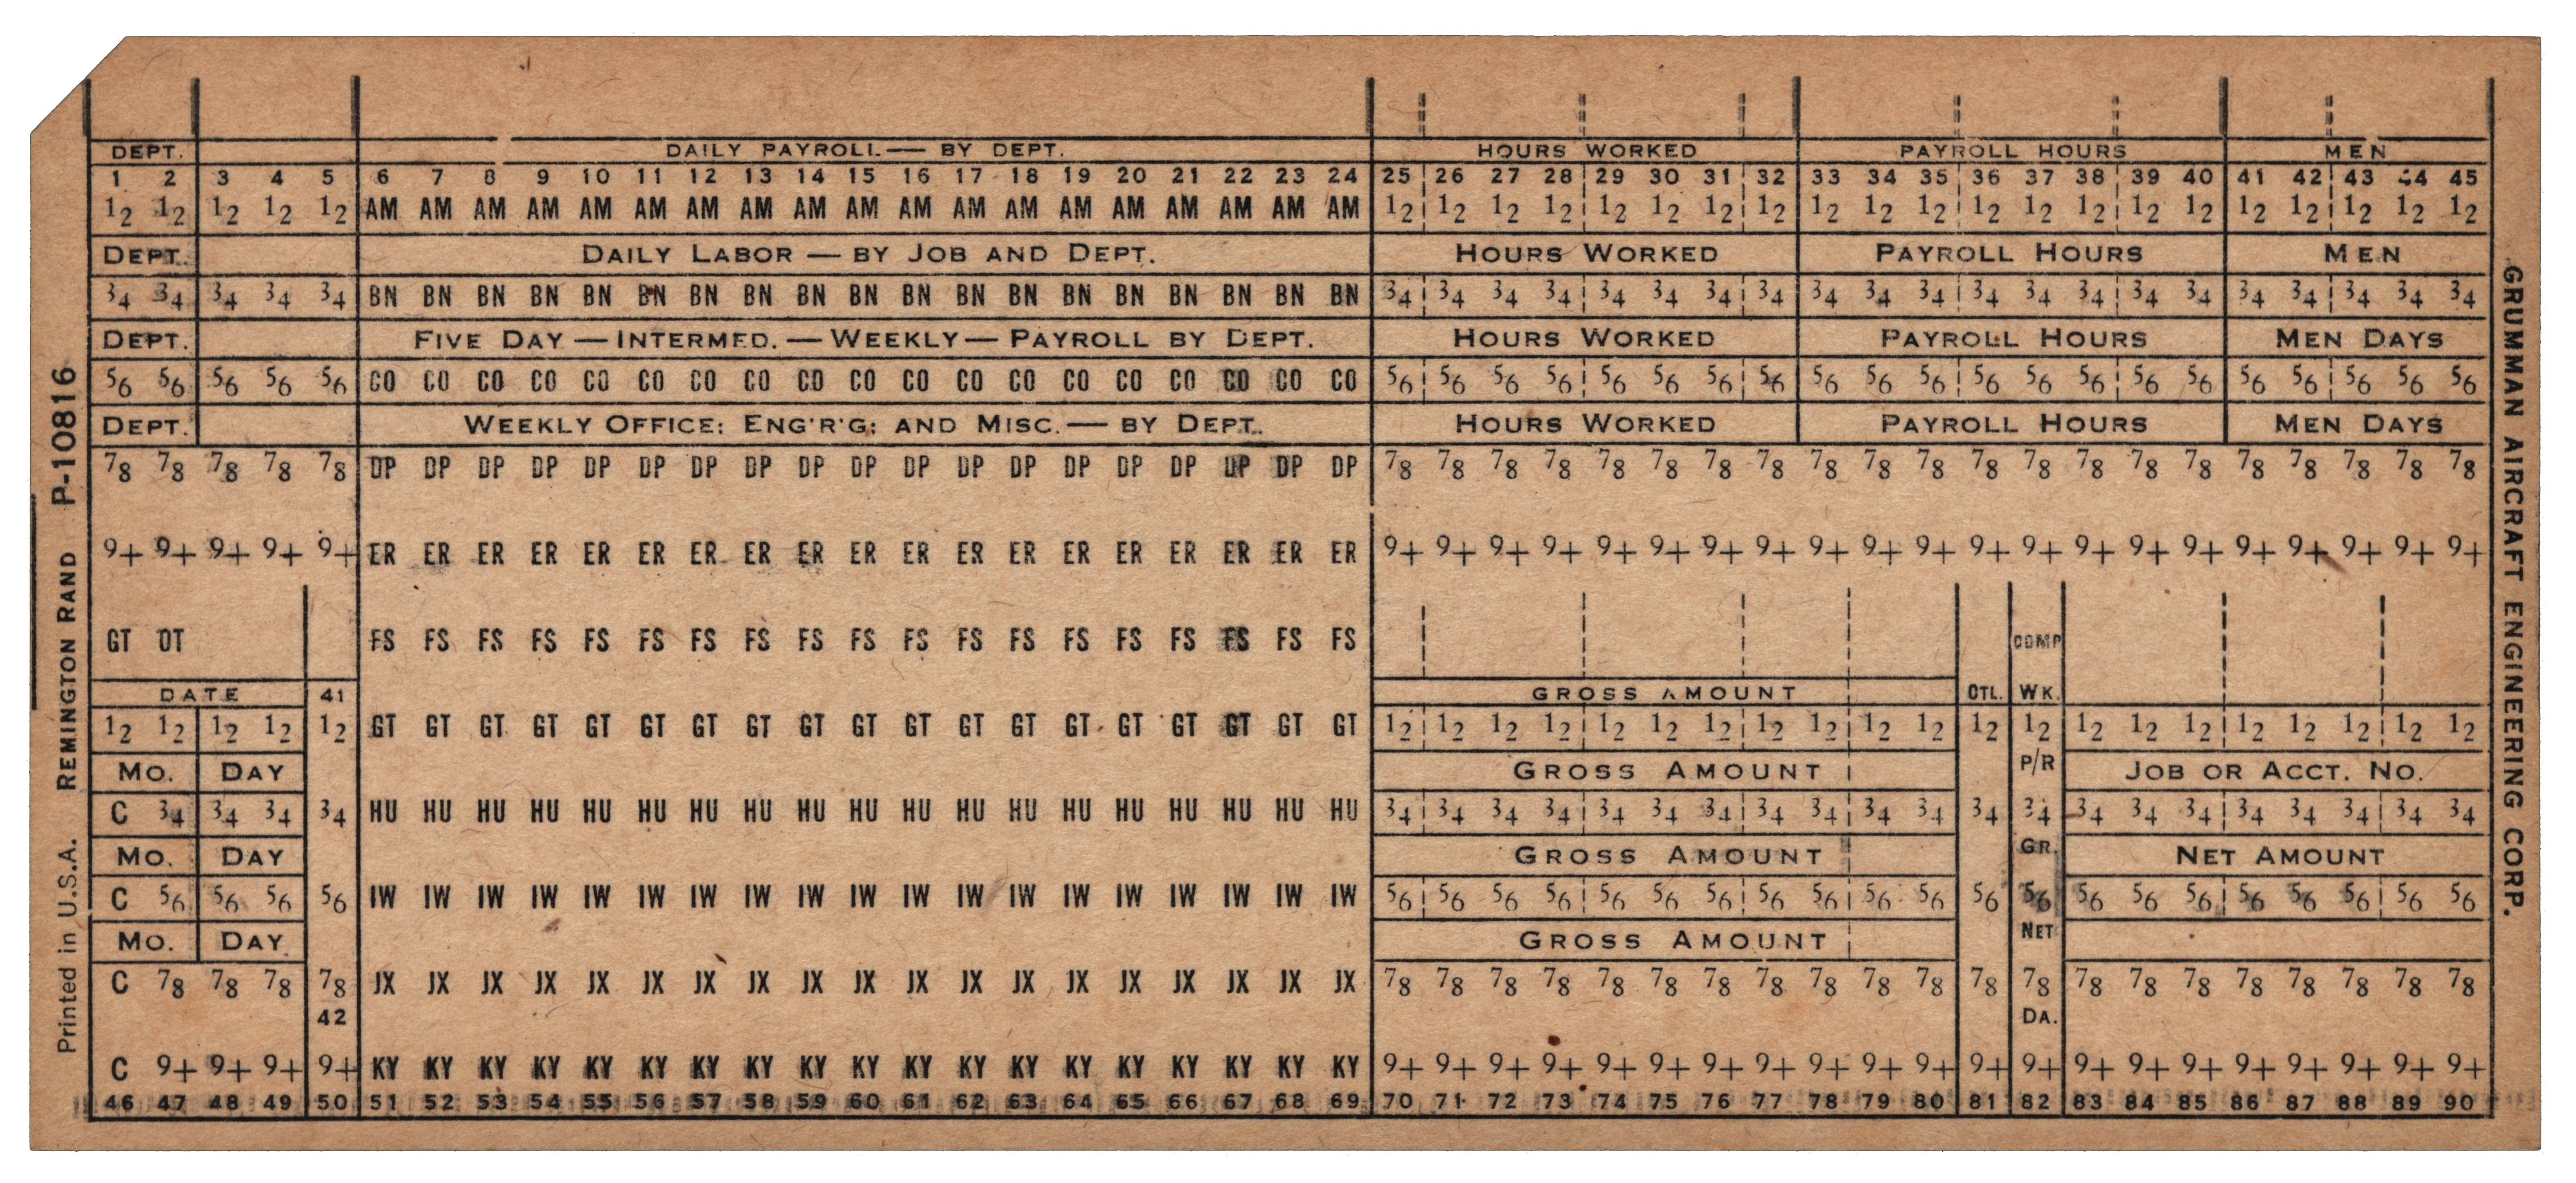 DEPT. DAILY PAYROLL — BY DEPT. HOURS WORKED PAYROLL HOURS MEN
1 2 3 4 5 6 7 8 9 10 11 12 13 14 15 16 17 18 19 20 21 22 23 24 25 26 27 28 29 30 31 32 33 34 35 36 37 38 39 40 41 42 43 44 45
12 12 12 12 12 AM AM AM AM AM AM AM AM AM AM AM AM AM AM AM AM AM AM AM 12 12 12 12 12 12 12 12 12 12 12 12 12 12 12 12 12 12 12 12 12
DEPT. DAILY LABOR — BY JOB AND DEPT. HOURS WORKED PAYROLL HOURS MEN
34 34 34 34 34 BN BN BN BN BN BN BN BN BN BN BN BN BN BN BN BN BN BN BN 34 34 34 34 34 34 34 34 34 34 34 34 34 34 34 34 34 34 34 34 34
DEPT. FIVE DAY — INTERMED. — WEEKLY — PAYROLL BY DEPT. HOURS WORKED PAYROLL HOURS MEN DAYS
56 56 56 56 56 CO CO CO CO CO CO CO CO CO CO CO CO CO CO CO CO CO CO CO 56 56 56 56 56 56 56 56 56 56 56 56 56 56 56 56 56 56 56 56 56
DEPT. WEEKLY OFFICE; ENG'R'G; AND MISC. — BY DEPT. HOURS WORKED PAYROLL HOURS MEN DAYS
78 78 78 78 78 DP DP DP DP DP DP DP DP DP DP DP DP DP DP DP DP DP DP DP 78 78 78 78 78 78 78 78 78 78 78 78 78 78 78 78 78 78 78 78 78
9+ 9+ 9+ 9+ 9+ ER ER ER ER ER ER ER ER ER ER ER ER ER ER ER ER ER ER ER 9+ 9+ 9+ 9+ 9+ 9+ 9+ 9+ 9+ 9+ 9+ 9+ 9+ 9+ 9+ 9+ 9+ 9+ 9+ 9+ 9+
GT OT FS FS FS FS FS FS FS FS FS FS FS FS FS FS FS FS FS FS FS COMP
DATE 41 GROSS AMOUNT CTL. WK.
12 12 12 12 12 GT GT GT GT GT GT GT GT GT GT GT GT GT GT GT GT GT GT GT 12 12 12 12 12 12 12 12 12 12 12 12 12 12 12 12 12 12 12 12 12
MO. DAY GROSS AMOUNT P/R JOB OR ACCT. NO.
C 34 34 34 34 HU HU HU HU HU HU HU HU HU HU HU HU HU HU HU HU HU HU HU 34 34 34 34 34 34 34 34 34 34 34 34 34 34 34 34 34 34 34 34 34
MO. DAY GROSS AMOUNT GR. NET AMOUNT
C 56 56 56 56 IW IW IW IW IW IW IW IW IW IW IW IW IW IW IW IW IW IW IW 56 56 56 56 56 56 56 56 56 56 56 56 56 56 56 56 56 56 56 56 56
MO. DAY GROSS AMOUNT NET
C 78 78 78 78 JX JX JX JX JX JX JX JX JX JX JX JX JX JX JX JX JX JX JX 78 78 78 78 78 78 78 78 78 78 78 78 78 78 78 78 78 78 78 78 78
42 DA.
C 9+ 9+ 9+ 9+ KY KY KY KY KY KY KY KY KY KY KY KY KY KY KY KY KY KY KY 9+ 9+ 9+ 9+ 9+ 9+ 9+ 9+ 9+ 9+ 9+ 9+ 9+ 9+ 9+ 9+ 9+ 9+ 9+ 9+ 9+
46 47 48 49 50 51 52 53 54 55 56 57 58 59 60 61 62 63 64 65 66 67 68 69 70 71 72 73 74 75 76 77 78 79 80 81 82 83 84 85 86 87 88 89 90
Printed in U.S.A. REMINGTON RAND P-10816
GRUMMAN AIRCRAFT ENGINEERING CORP.